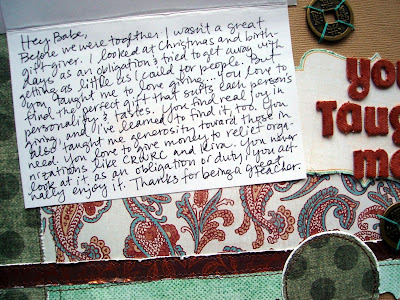 Hey Babe,
Before we were together I wasn't a great
gift-giver. I looked at Christmas and birth-
days as an obligation & tried to get away with
getting as little as I could for people. But
you taught me to love giving. You love to
find the perfect gift that suits each person's
personality & tastes. You find real joy in
giving and I've learned to find it too. You
also taught me generosity toward those in
need. You love to give money to relief orga-
nizations like CRWRC and Kiva. You never
look at it as an obligation or duty, you act-
ually enjoy it. Thanks for being a great
teacher.
you
Taug
me